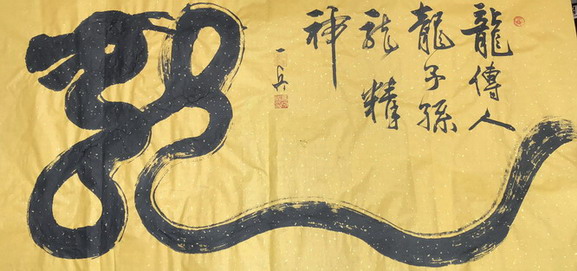 龍傳人
龍子孫
龍精
神
一兵